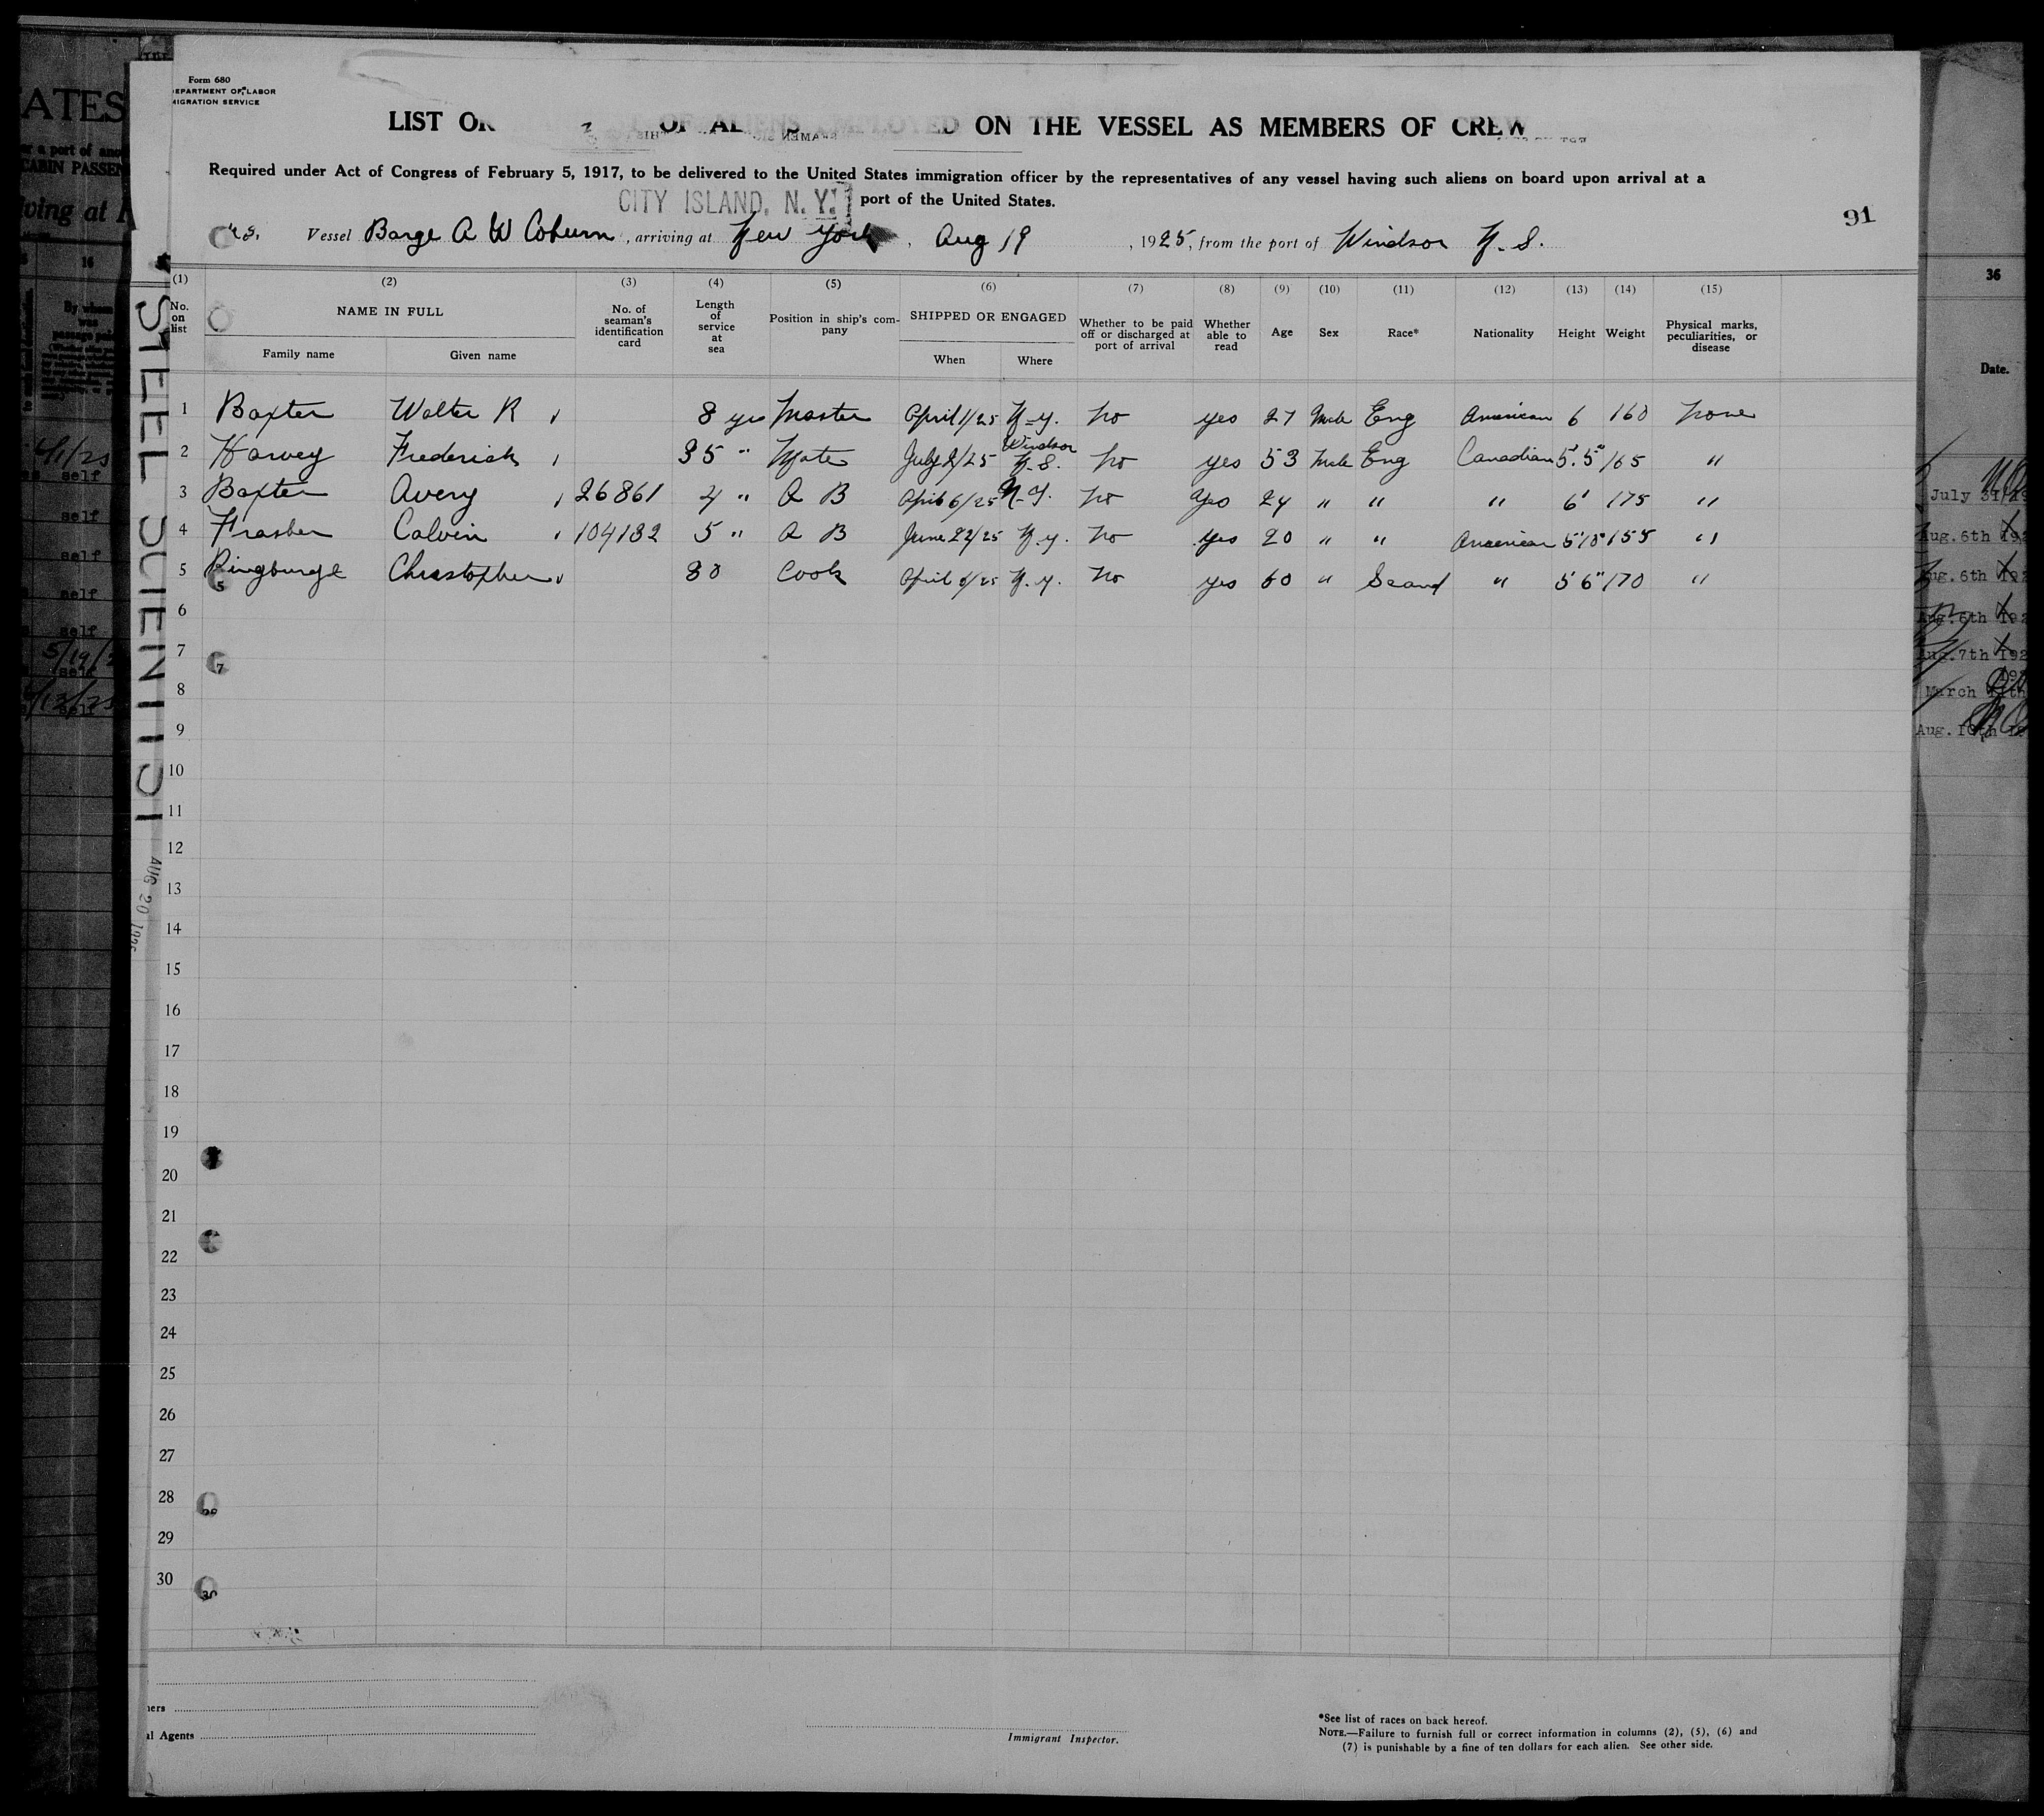 Form 680
DEPARTMENT OF LABOR
MIGRATION SERVICE
LIST OR OF ALIENS EMPLOYED ON THE VESSEL AS MEMBERS OF CREW
Required under Act of Congress of February 5, 1917, to be delivered to the United States immigration officer by the representatives of any vessel having such aliens on board upon arrival at a
port of the United States.
CITY ISLAND, N. Y.
91
Vessel Barge A W Coburn, arriving at New York, Aug 19, 1925, from the port of Windsor N.S.
(1) (2) (3) (4) (5) (6) (7) (8) (9) (10) (11) (12) (13) (14) (15)
No. on list NAME IN FULL No. of seaman's identification card Length of service at sea Position in ship's company SHIPPED OR ENGAGED Whether to be paid off or discharged at port of arrival Whether able to read Age Sex Race* Nationality Height Weight Physical marks, peculiarities, or disease
Family name Given name When Where
1 Baxter Walter R 8 yrs Master April 1/25 N.Y. No yes 27 Male Eng American 6 160 None
2 Harvey Frederick 35 " Mate July 2/25 Windsor N.S. No yes 53 Male Eng Canadian 5'.5" 165 "
3 Baxter Avery 26861 4 " A B April 6/25 N.Y. No Yes 24 " " " 6' 175 "
4 Frasher Calvin 104132 5 " A B June 22/25 N.Y. No yes 20 " " American 5'10" 155 "
5 Christopher 30 Cook April 6/25 N.Y. No yes 60 " Scand " 5 6" 170 "
6
7
8
9
10
11
12
13
14
15
16
17
18
19
20
21
22
23
24
25
26
27
28
29
30
STEEL SCIENTIST
AUG 20 1925
ners
al Agents
Immigrant Inspector.
*See list of races on back hereof.
NOTE.—Failure to furnish full or correct information in columns (2), (5), (6) and
(7) is punishable by a fine of ten dollars for each alien. See other side.
ATES
er a port of ano
CABIN PASSEN
iving at
16
By whom was
4/1/25
self
self
self
self
self
5/19/
self
self
36
Date.
July 31
Aug. 6th 192
Aug. 6th 192
Aug. 6th 192
Aug. 7th 192
March 11th
Aug. 10th 19